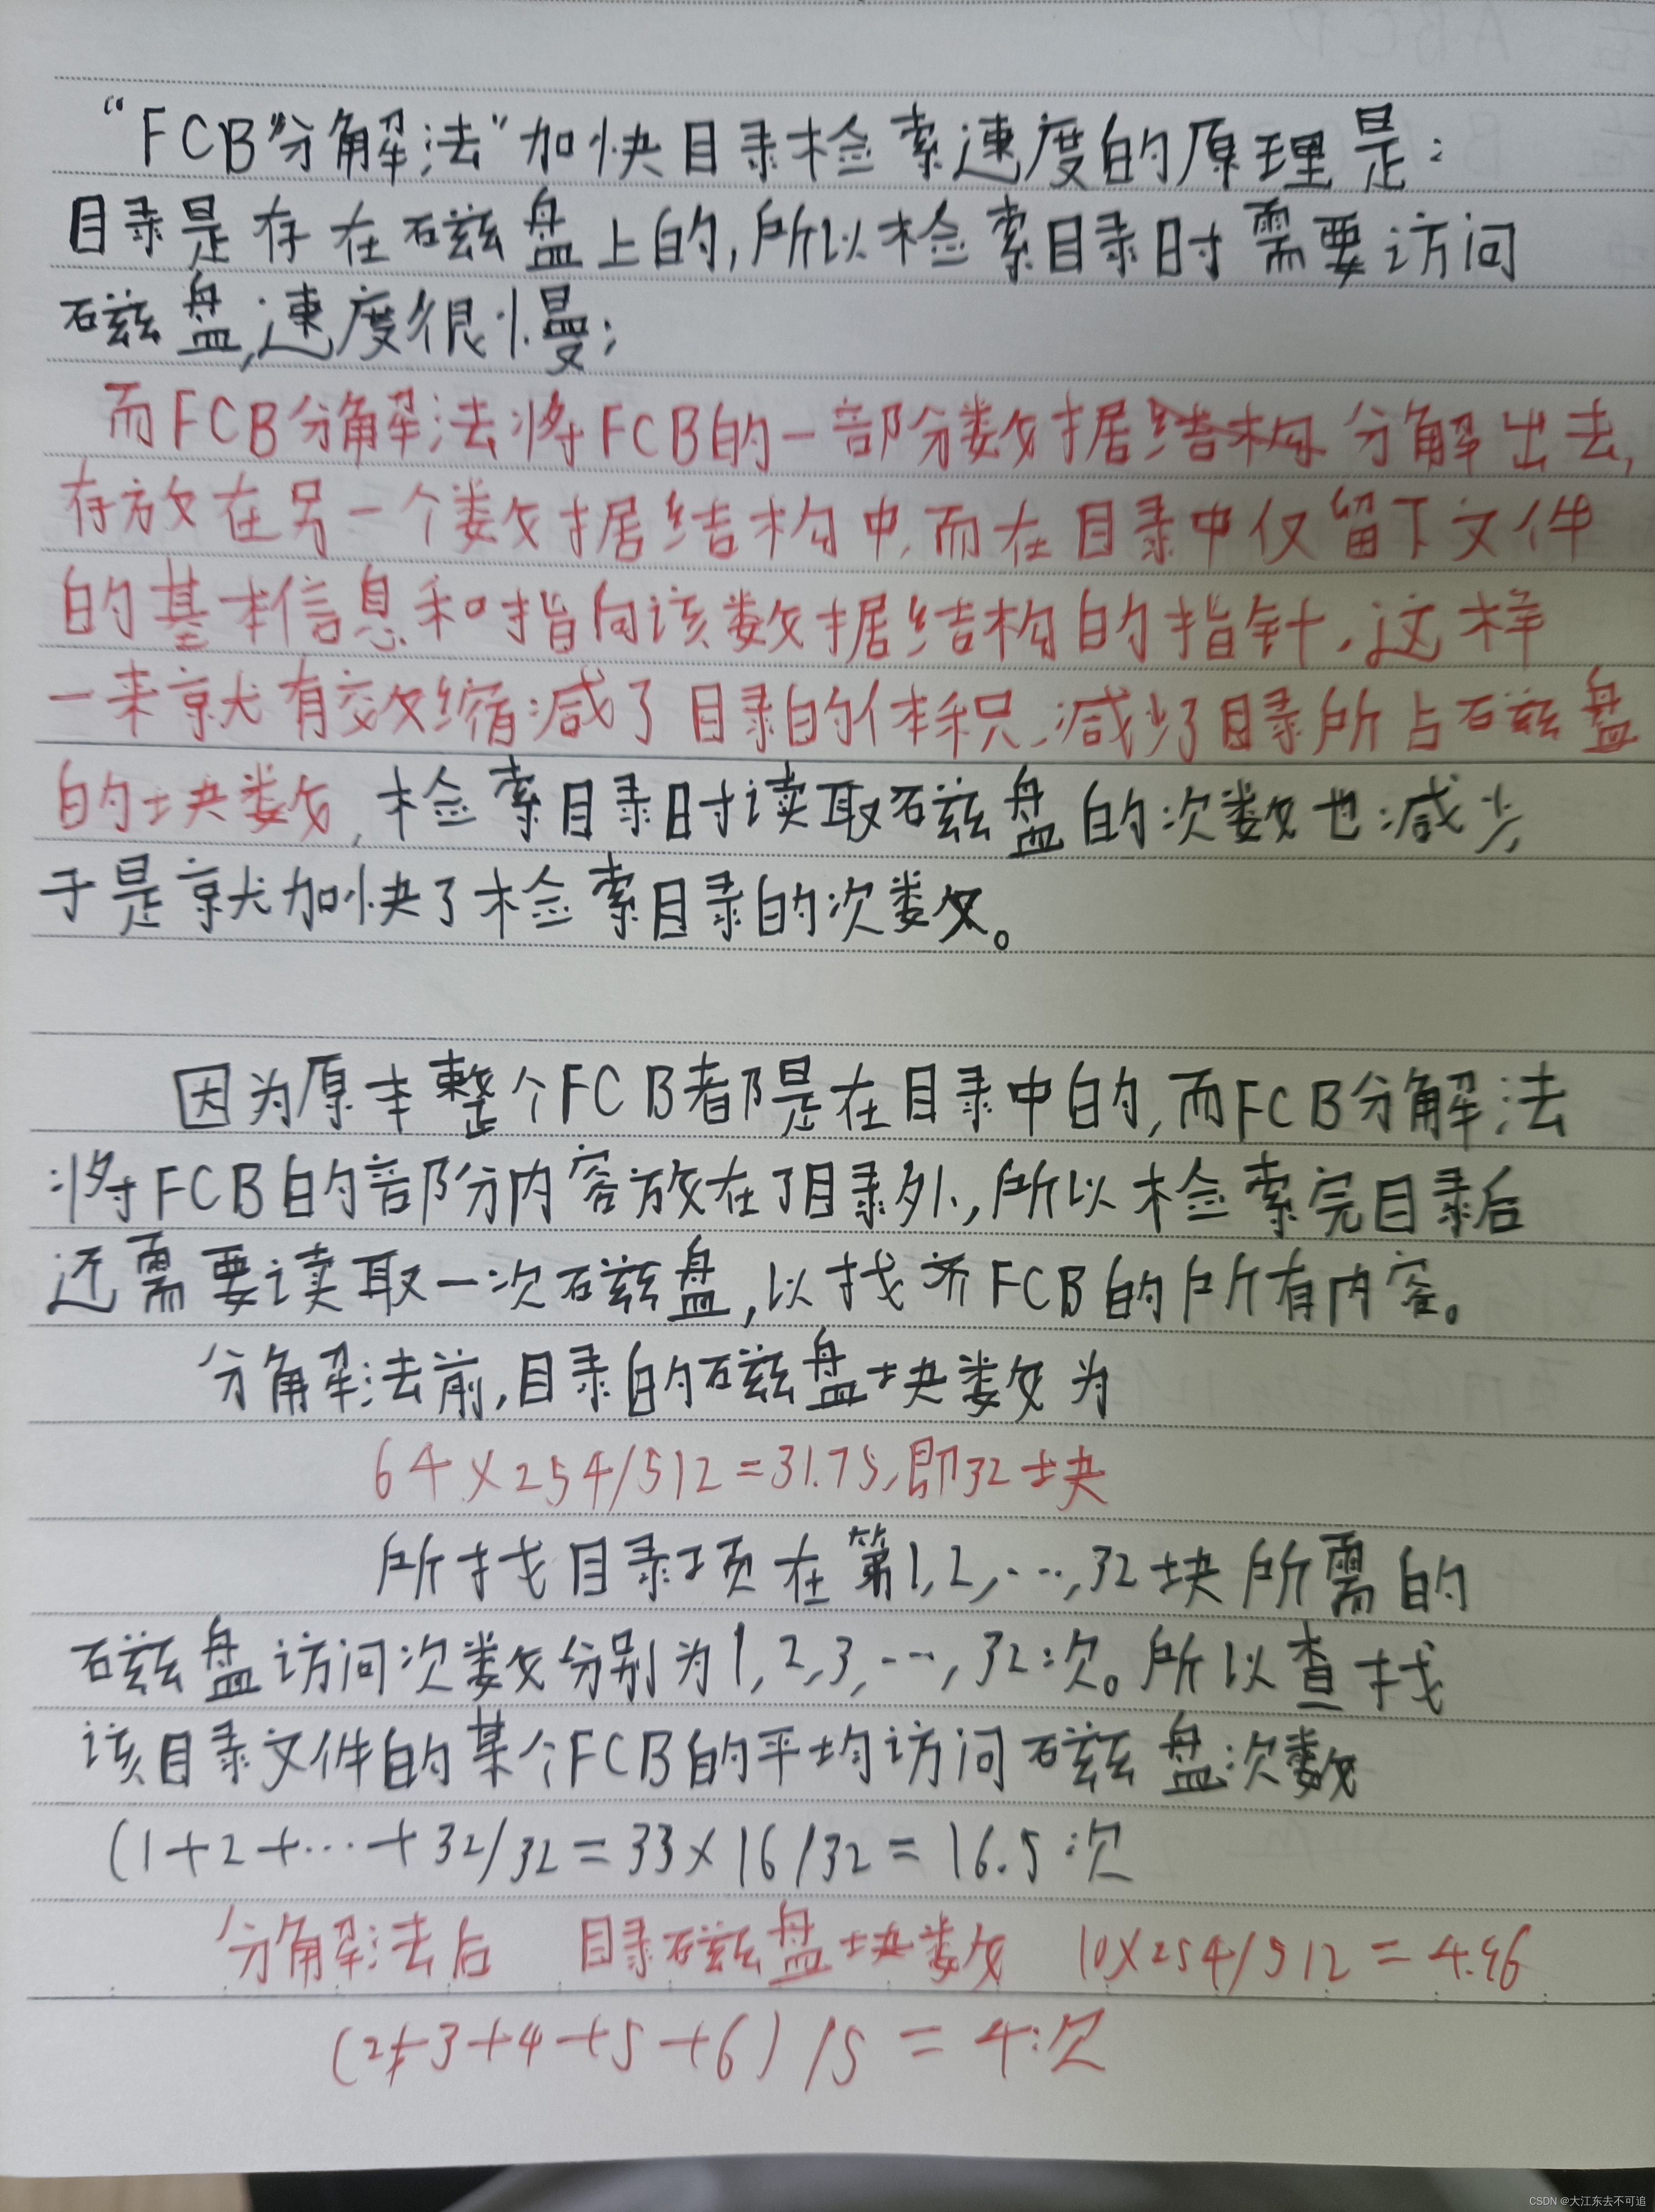 “FCB”分解法”加快目录检索速度的原理是:
目录是存在磁盘上的,所以检索目录时需要访问
磁盘,速度很慢;
而FCB分解法将FCB的一部分数据结构分解出去,
存放在另一个数据结构中,而在目录中仅留下文件
的基本信息和指向该数据结构的指针,这样
一来就有效缩减了目录的体积,减少了目录所占磁盘
的块数,检索目录时读取磁盘的次数也减少,
于是就加快了检索目录的次数。
因为原本整个FCB都是在目录中的,而FCB分解法
将FCB的部分内容放在了目录外,所以检索完目录后
还需要读取一次磁盘,以找齐FCB的所有内容。
分解法前,目录的磁盘块数为
64×254/512=31.75,即32块
所找目录项在第1,2,…,32块所需的
磁盘访问次数分别为1,2,3,…,32次。所以查找
该目录文件的某个FCB的平均访问磁盘次数
(1+2+…+32/32=33×16/32=16.5次
分解法后 目录磁盘块数 10×254/512=4.96
(2+3+4+5+6)/5=4次
CSDN @大江东去不可追